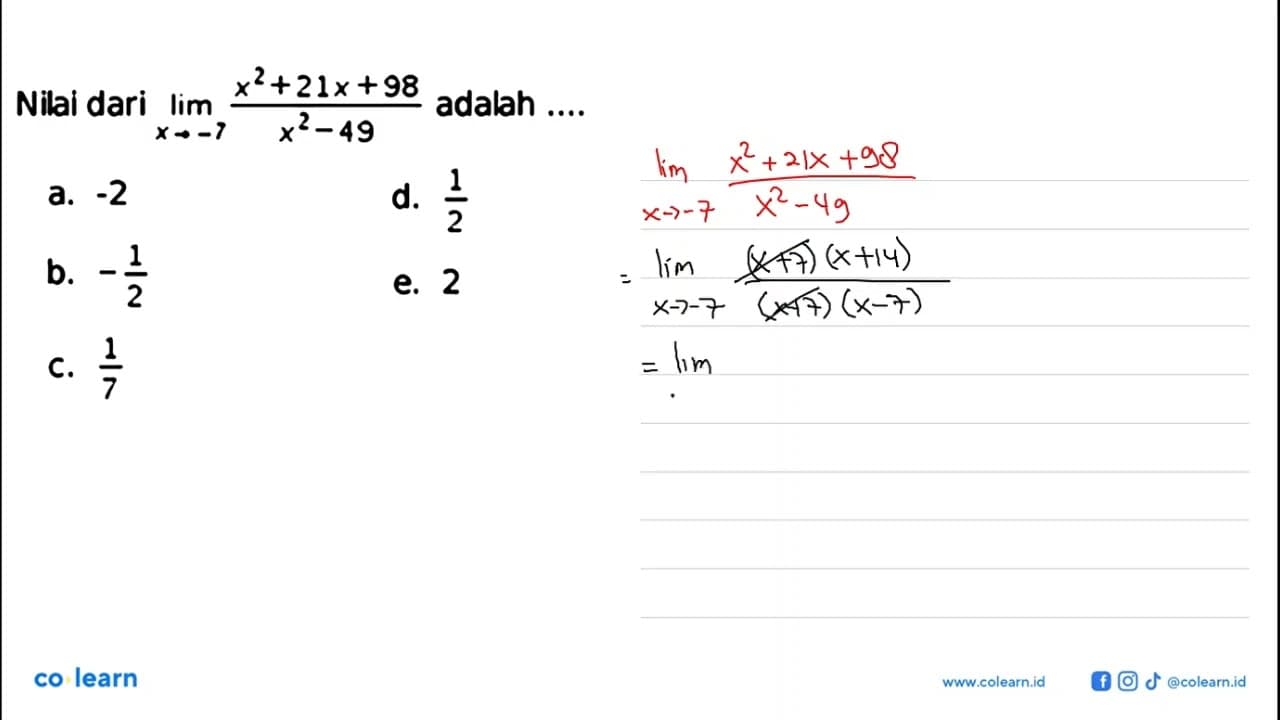 Nilai dari lim x→-7 x²+21x+98 / x²-49 adalah ....
a. -2
b. -1/2
c. 1/7
d. 1/2
e. 2
lim x→-7 x²+21x+98 / x²-49
= lim x→-7 (x+7)(x+14) / (x+7)(x-7)
= lim
co learn
www.colearn.id
@colearn.id